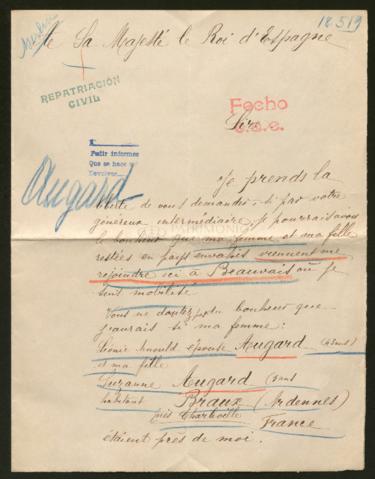 18.519
A Sa Majesté le Roi d'Espagne
REPATRIACIÓN
CIVIL
Fecho
Sire,
Pedir informes
Que se hace
Devolver
Augard
Je prends la
liberté de vous demander, si par votre
généreux intermédiaire, je pourrais avoir
le bonheur que ma femme et ma fille
restées en pays envahis viennent me
rejoindre ici à Beauvais où je
suis mobilisé.
Vous ne doutez pas du bonheur que
j'aurais si ma femme:
Léonie épouse Augard
et ma fille
Suzanne Augard
habitant Braux (Ardennes)
près Charleville France
étaient près de moi.